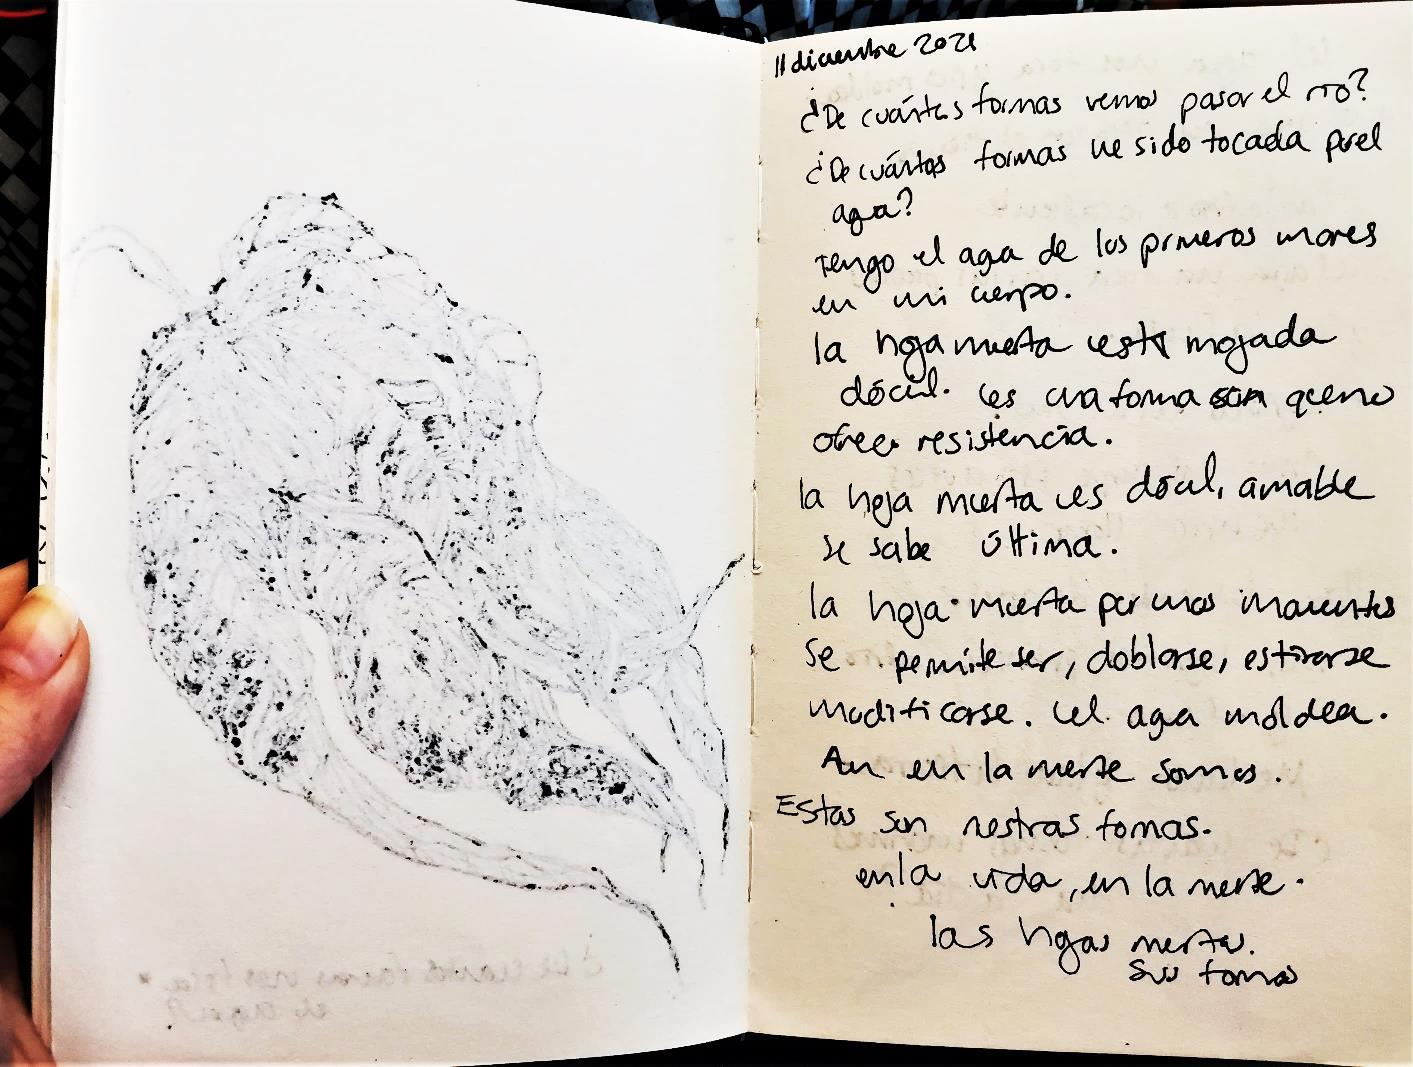 11 diciembre 2021
¿De cuántas formas vemos pasar el río?
¿De cuántas formas he sido tocada por el
agua?
Tengo el agua de los primeros mares
en mi cuerpo.
la hoja muerta está mojada
dócil. es una forma que no
ofrece resistencia.
la hoja muerta es dócil, amable
se sabe última.
la hoja muerta por unos
se permite ser, doblarse, estirarse
modificarse. el agua moldea.
Aun en la muerte somos.
Estas son nuestras formas.
en la vida, en la muerte.
las hojas muertas.
sus formas